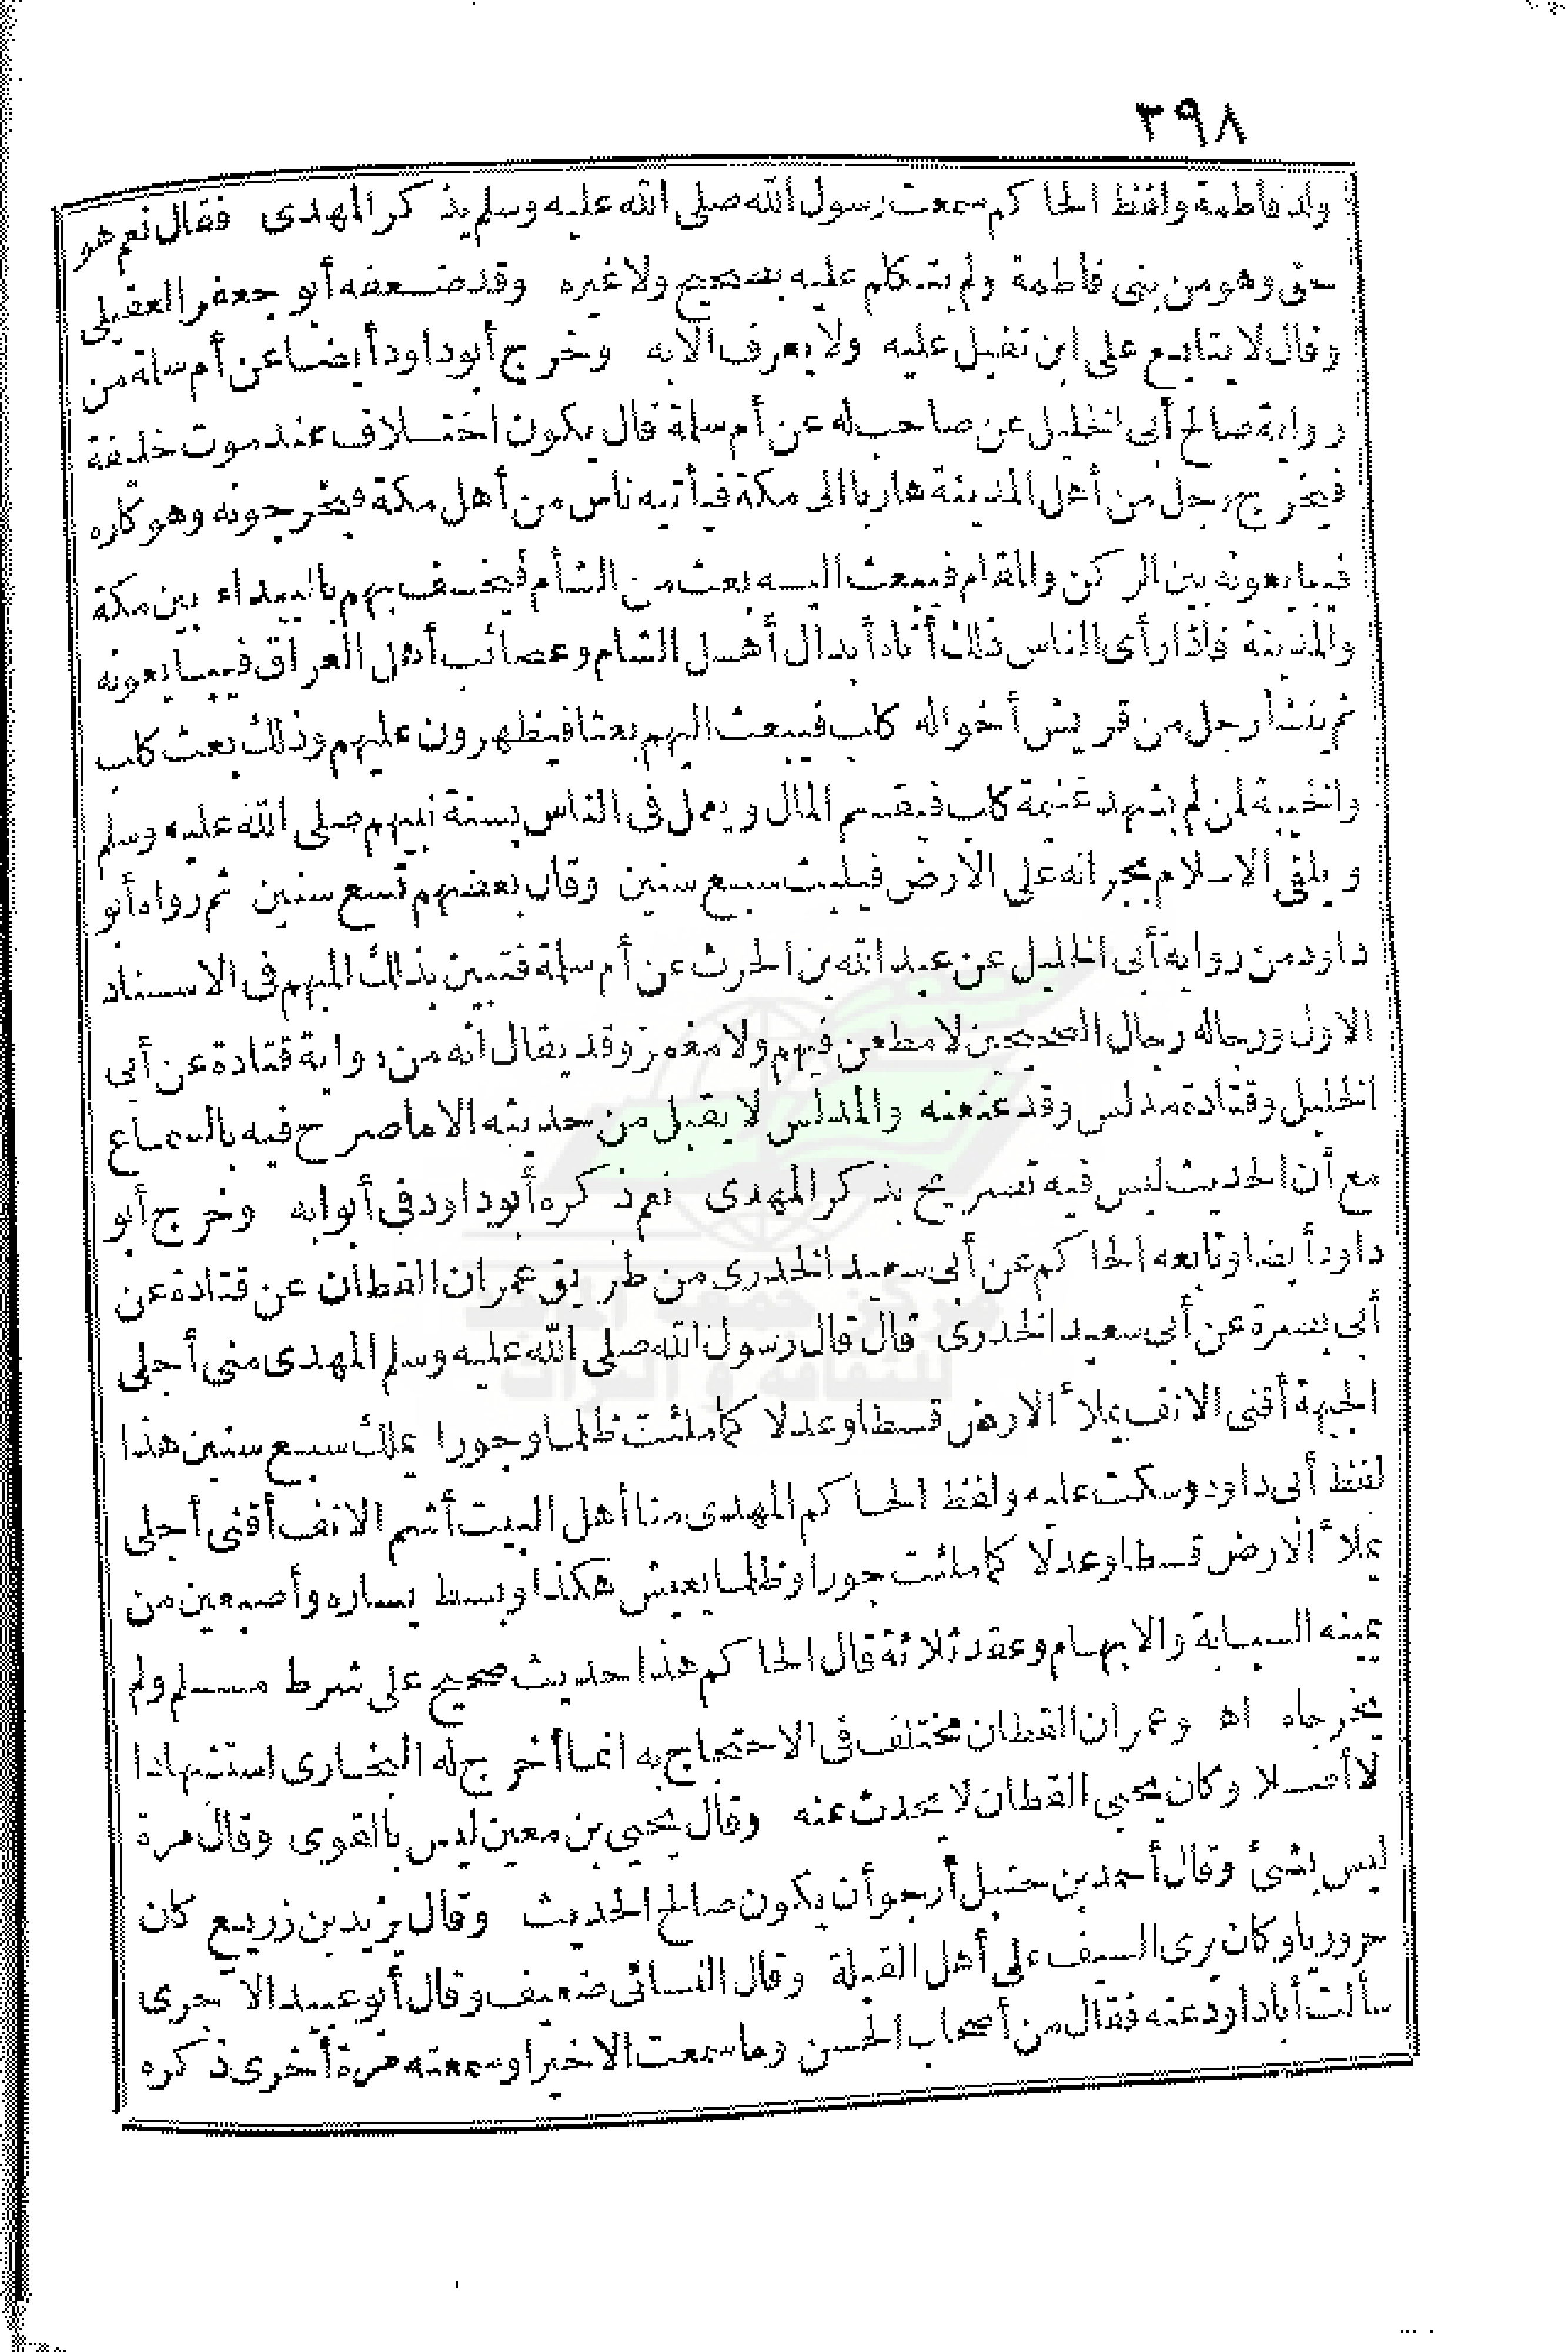 ٣٩٨
ولد فاطمة ولفظ الحاكم سمعت رسول الله صلى الله عليه وسلم يذكر المهدى فقال نعم هو
حق وهو من بنى فاطمة ولم يتكلم عليه بصحيح ولا غيره وقد ضعفه أبو جعفر العقيلى
وقال لا يتابع على ابن نفيل عليه ولا يعرف الا به وخرج أبو داود أيضا عن أم سلمة من
رواية صالح أبى الخليل عن صاحب له عن أم سلمة قال يكون اختلاف عند موت خليفة
فيخرج رجل من أهل المدينة هاربا الى مكة فيأتيه ناس من أهل مكة فيخرجونه وهو كاره
فيبايعونه بين الركن والمقام فيبعث اليه بعث من الشأم فيخسف بهم بالبيداء بين مكة
والمدينة فاذا رأى الناس ذلك أتاه أبدال أهل الشام وعصائب أهل العراق فيبايعونه
ثم ينشأ رجل من قريش أخواله كلب فيبعث اليهم بعثا فيظهرون عليهم وذلك بعث كلب
والخيبة لمن لم يشهد غنيمة كلب فيقسم المال ويعمل فى الناس بسنة نبيهم صلى الله عليه وسلم
ويلقى الاسلام بجرانه على الارض فيلبث سبع سنين وقال بعضهم تسع سنين ثم رواه أبو
داود من رواية أبى الخليل عن عبد الله بن الحرث عن أم سلمة فتبين بذلك المبهم فى الاسناد
الاول ورجاله رجال الصحيحين لا مطعن فيهم ولا مغمز وقد يقال انه من رواية قتادة عن أبى
الخليل وقتادة مدلس وقد عنعنه والمدلس لا يقبل من حديثه الا ما صرح فيه بالسماع
مع أن الحديث ليس فيه تصريح بذكر المهدى نعم ذكره أبو داود فى أبوابه وخرج أبو
داود أيضا وتابعه الحاكم عن أبى سعيد الخدرى من طريق عمران القطان عن قتادة عن
أبى بصرة عن أبى سعيد الخدرى قال قال رسول الله صلى الله عليه وسلم المهدى منى أجلى
الجبهة أقنى الانف يملأ الارض قسطا وعدلا كما ملئت ظلما وجورا يملك سبع سنين هذا
لفظ أبى داود وسكت عليه ولفظ الحاكم المهدى منا أهل البيت أشم الانف أقنى أجلى
يملأ الارض قسطا وعدلا كما ملئت جورا وظلما يعيش هكذا وبسط يساره وأصبعين من
يمينه السبابة والابهام وعقد ثلاثة قال الحاكم هذا حديث صحيح على شرط مسلم ولم
يخرجاه اه وعمران القطان مختلف فى الاحتجاج به انما أخرج له البخارى استشهادا
لا أصلا وكان يحيى القطان لا يحدث عنه وقال يحيى بن معين ليس بالقوى وقال مرة
ليس بشئ وقال أحمد بن حنبل أرجو أن يكون صالح الحديث وقال يزيد بن زريع كان
حروريا وكان يرى السيف على أهل القبلة وقال النسائى ضعيف وقال أبو عبيد الآجرى
سألت أبا داود عنه فقال من أصحاب الحسن وما سمعت الا خيرا وسمعته مرة أخرى ذكره
مركز جمعة الماجد
للثقافة و التراث